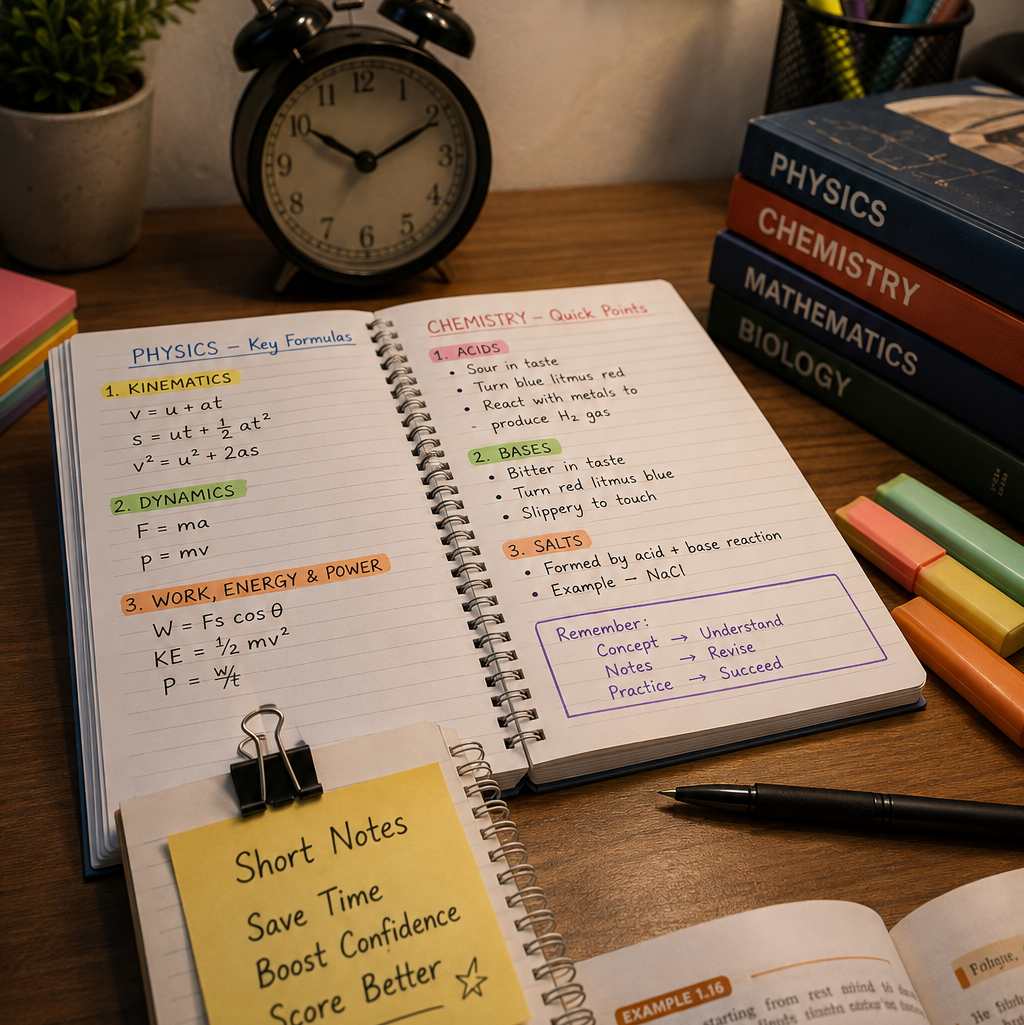 12
1
2
3
4
5
6
7
8
9
10
11
PHYSICS
CHEMISTRY
MATHEMATICS
BIOLOGY
PHYSICS – Key Formulas
1. KINEMATICS
v = u + at
s = ut + 1/2 at²
v² = u² + 2as
2. DYNAMICS
F = ma
p = mv
3. WORK, ENERGY & POWER
W = Fs cos θ
KE = 1/2 mv²
P = w/t
CHEMISTRY – Quick Points
1. ACIDS
• Sour in taste
• Turn blue litmus red
• React with metals to
- produce H₂ gas
2. BASES
• Bitter in taste
• Turn red litmus blue
• Slippery to touch
3. SALTS
• Formed by acid + base reaction
• Example – NaCl
Remember:
Concept → Understand
Notes → Revise
Practice → Succeed
Short Notes
Save Time
Boost Confidence
Score Better ☆
EXAMPLE 1.16
starting from rest